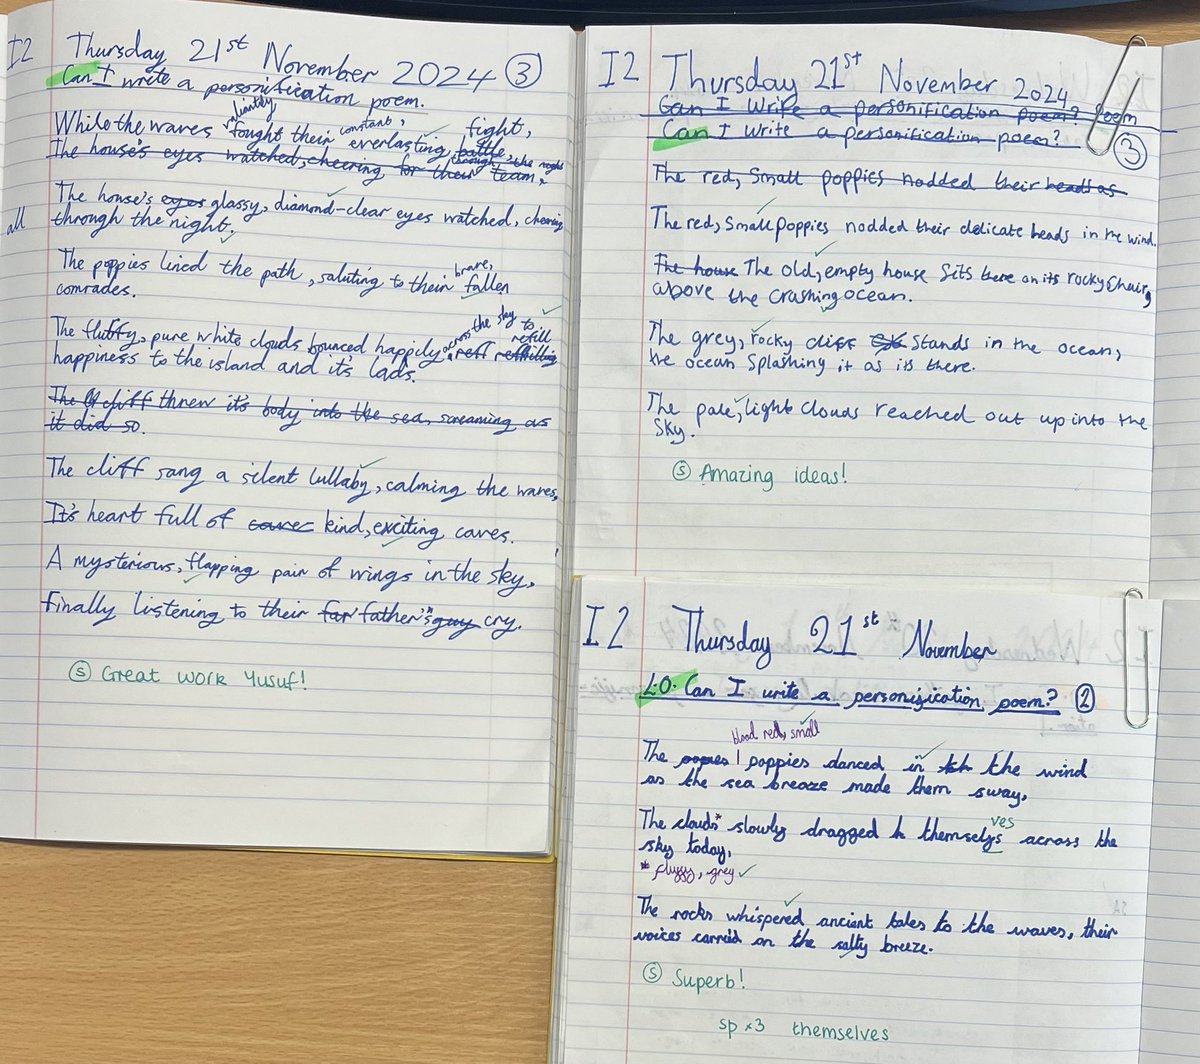 I2 Thursday 21st November 2024 3
Can I write a personification poem.
valiantly constant,
While the waves fought their everlasting battle, fight,
The house's eyes watched, cheering for their team, through the night
The house's eyes glassy, diamond-clear eyes watched, cheering
all through the night.
brave,
The poppies lined the path, saluting to their fallen
comrades.
across the sky to refill
The fluffy, pure white clouds bounced happily reff refilling
happiness to the island and it's lads.
The cliff threw it's body into the sea, screaming as
it did so.
The cliff sang a silent lullaby, calming the waves,
It's heart full of cave kind, exciting caves.
A mysterious, flapping pair of wings in the sky,
Finally listening to their far father's guy cry.
S Great work Yusuf!
I2 Thursday 21st November 2024
Can I write a personification poem? Poem
Can I write a personification poem? 3
The red, small poppies nodded their heads as
The red, small poppies nodded their delicate heads in the wind.
The house The old, empty house sits there on its rocky chair,
above the crashing ocean.
The grey, rocky cliff stands in the ocean,
the ocean splashing it as it's there.
The pale, light clouds reached out up into the
sky.
S Amazing ideas!
I2 Thursday 21st November
L.O. Can I write a personification poem? 2
blood red, small
The popies poppies danced in th the wind
as the sea breaze made them sway,
ves
The clouds* slowly dragged themselys across the
sky today,
* fluffy, grey
The rocks whispered ancient tales to the waves, their
voices carried on the salty breeze.
S Superb!
sp x3 themselves